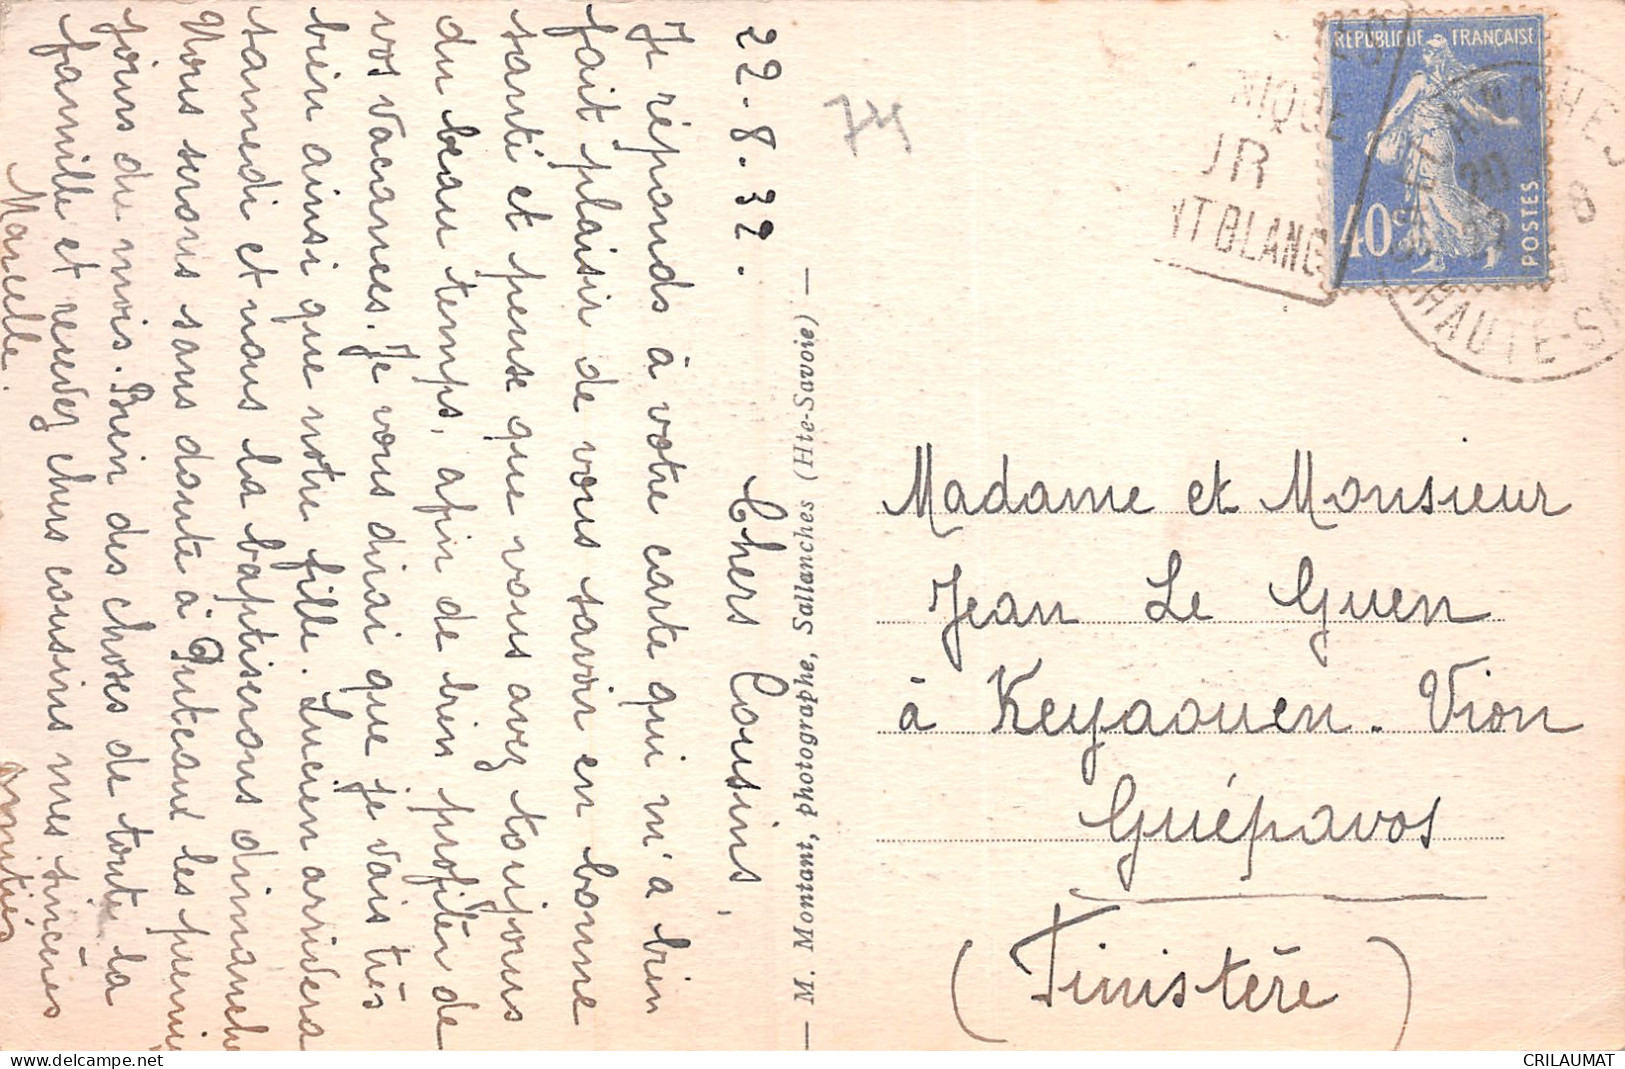 22-8.32.
Chers Cousins,
Je réponds à votre carte qui m'a bien
fait plaisir de vous savoir en bonne
santé et pense que vous avez toujours
du beau temps, afin de bien profiter de
vos vacances. Je vous dirai que je vais très
bien ainsi que notre fille. Lucien arrivera
samedi et nous la baptiserons dimanche
Nous serons sans doute à Puteaux les premiers
jours du mois. Bien des choses de toute la
famille et recevez chers cousins mes sincères
amitiés
Marcelle.
74
— M. Montant, photographe, Sallanches (Hte-Savoie) —
RÉPUBLIQUE FRANÇAISE
40c
POSTES
NIQUE
UR
NT BLANC
ANCHES
20
8
HAUTE-S
Madame et Monsieur
Jean Le Guen
à Keyaouen. Vion
Guépavos
(Finistère)
www.delcampe.net
CRILAUMAT